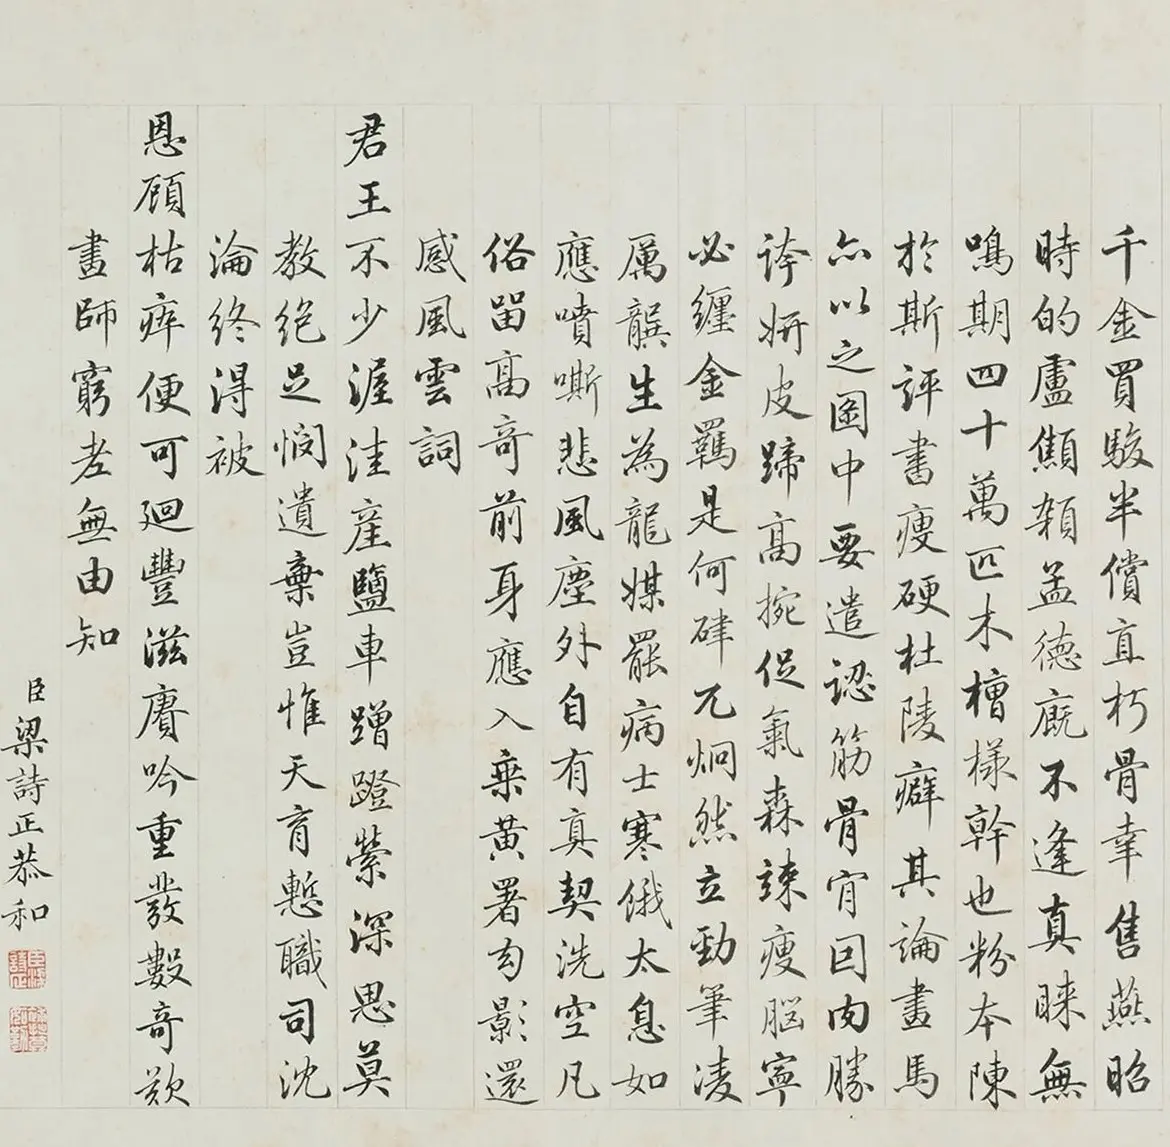 千金買駿半償直朽骨幸售燕昭
時的盧顦顇孟德廐不逢真睞無
鳴期四十萬匹木檀樣幹也粉本陳
於斯評書瘦硬杜陵癖其論畫馬
亦以之圖中要遣認筋骨肎因肉勝
誇妍皮蹄高捥促氣森竦瘦腦寧
必纏金羈是何硉兀炯然立勁筆淩
厲龔生為龍媒罷病士寒俄太息如
應噴嘶悲風塵外自有真契洗空凡
俗留高奇前身應入乘黃署勾影還
感風雲詞
君王不少渥洼産鹽車蹭蹬縈深思莫
教絕足憫遺棄豈惟天育慙職司沈
淪終得被
恩顧枯瘁便可迴豐滋賡吟重發數奇欸
畫師窮老無由知
臣梁詩正恭和